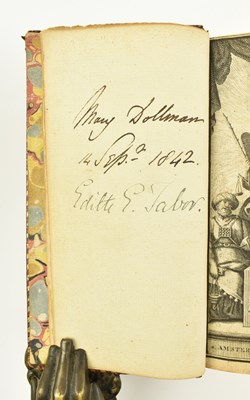 Mary Dollman
14 Sep.r 1842.
Edith E. Tabor.
AMSTER